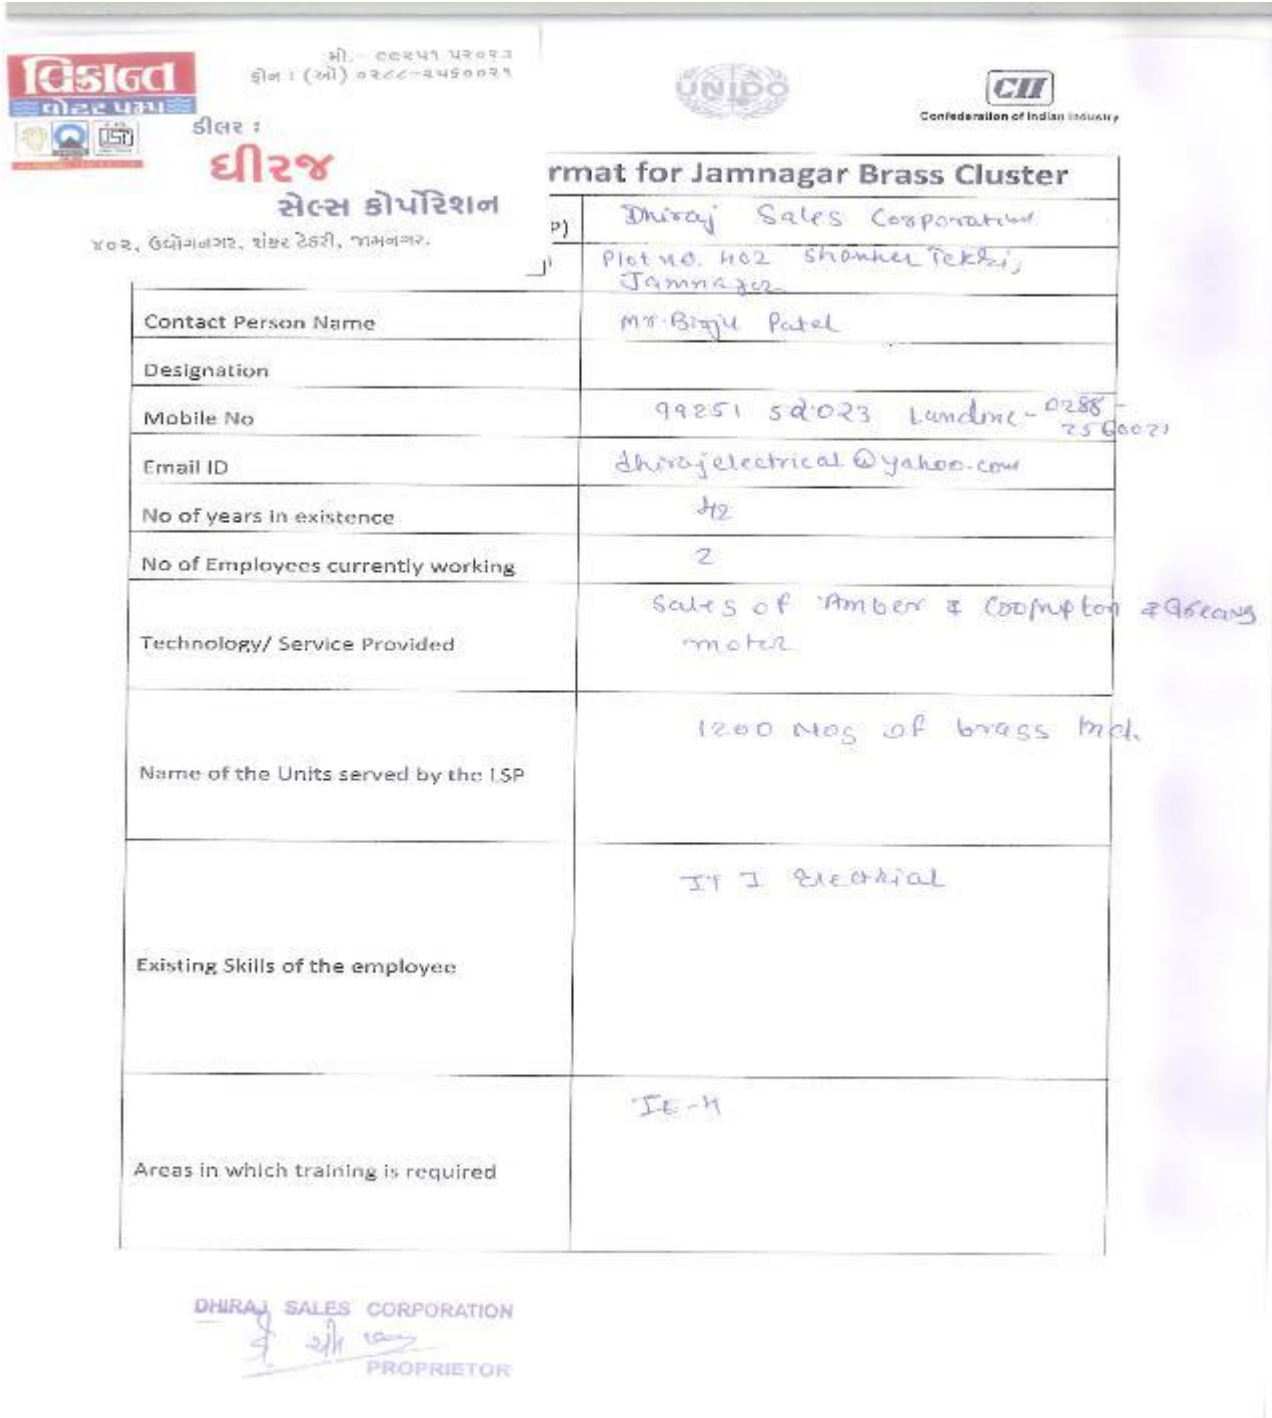 મો.- ૯૯૨૫૧ ૫૨૦૨૩
ફોન : (ઓ) ૦૨૮૮-૨૫૬૦૦૨૧
વિક્રાન્ત
વોટર પમ્પ
ISI
ડીલર :
ધીરજ
સેલ્સ કોર્પોરેશન
૪૦૨, ઉદ્યોગનગર, શંકર ટેકરી, જામનગર.
UNIDO
CII
Confederation of Indian Industry
rmat for Jamnagar Brass Cluster
P) Dhiraj Sales Corporation
Plot no. 402 Shanker Tekri,
Jamnagar
Contact Person Name Mr. Birju Patel
Designation
Mobile No 99251 52023 Landine- 0288-
2560021
Email ID dhirajelectrical@yahoo.com
No of years in existence 42
No of Employees currently working 2
Technology/ Service Provided Sales of Amber & Coompton &
motor
Name of the Units served by the LSP 1200 Nos of brass Ind.
Existing Skills of the employee ITI Electrial
Areas in which training is required IE-4
DHIRAJ SALES CORPORATION
PROPRIETOR